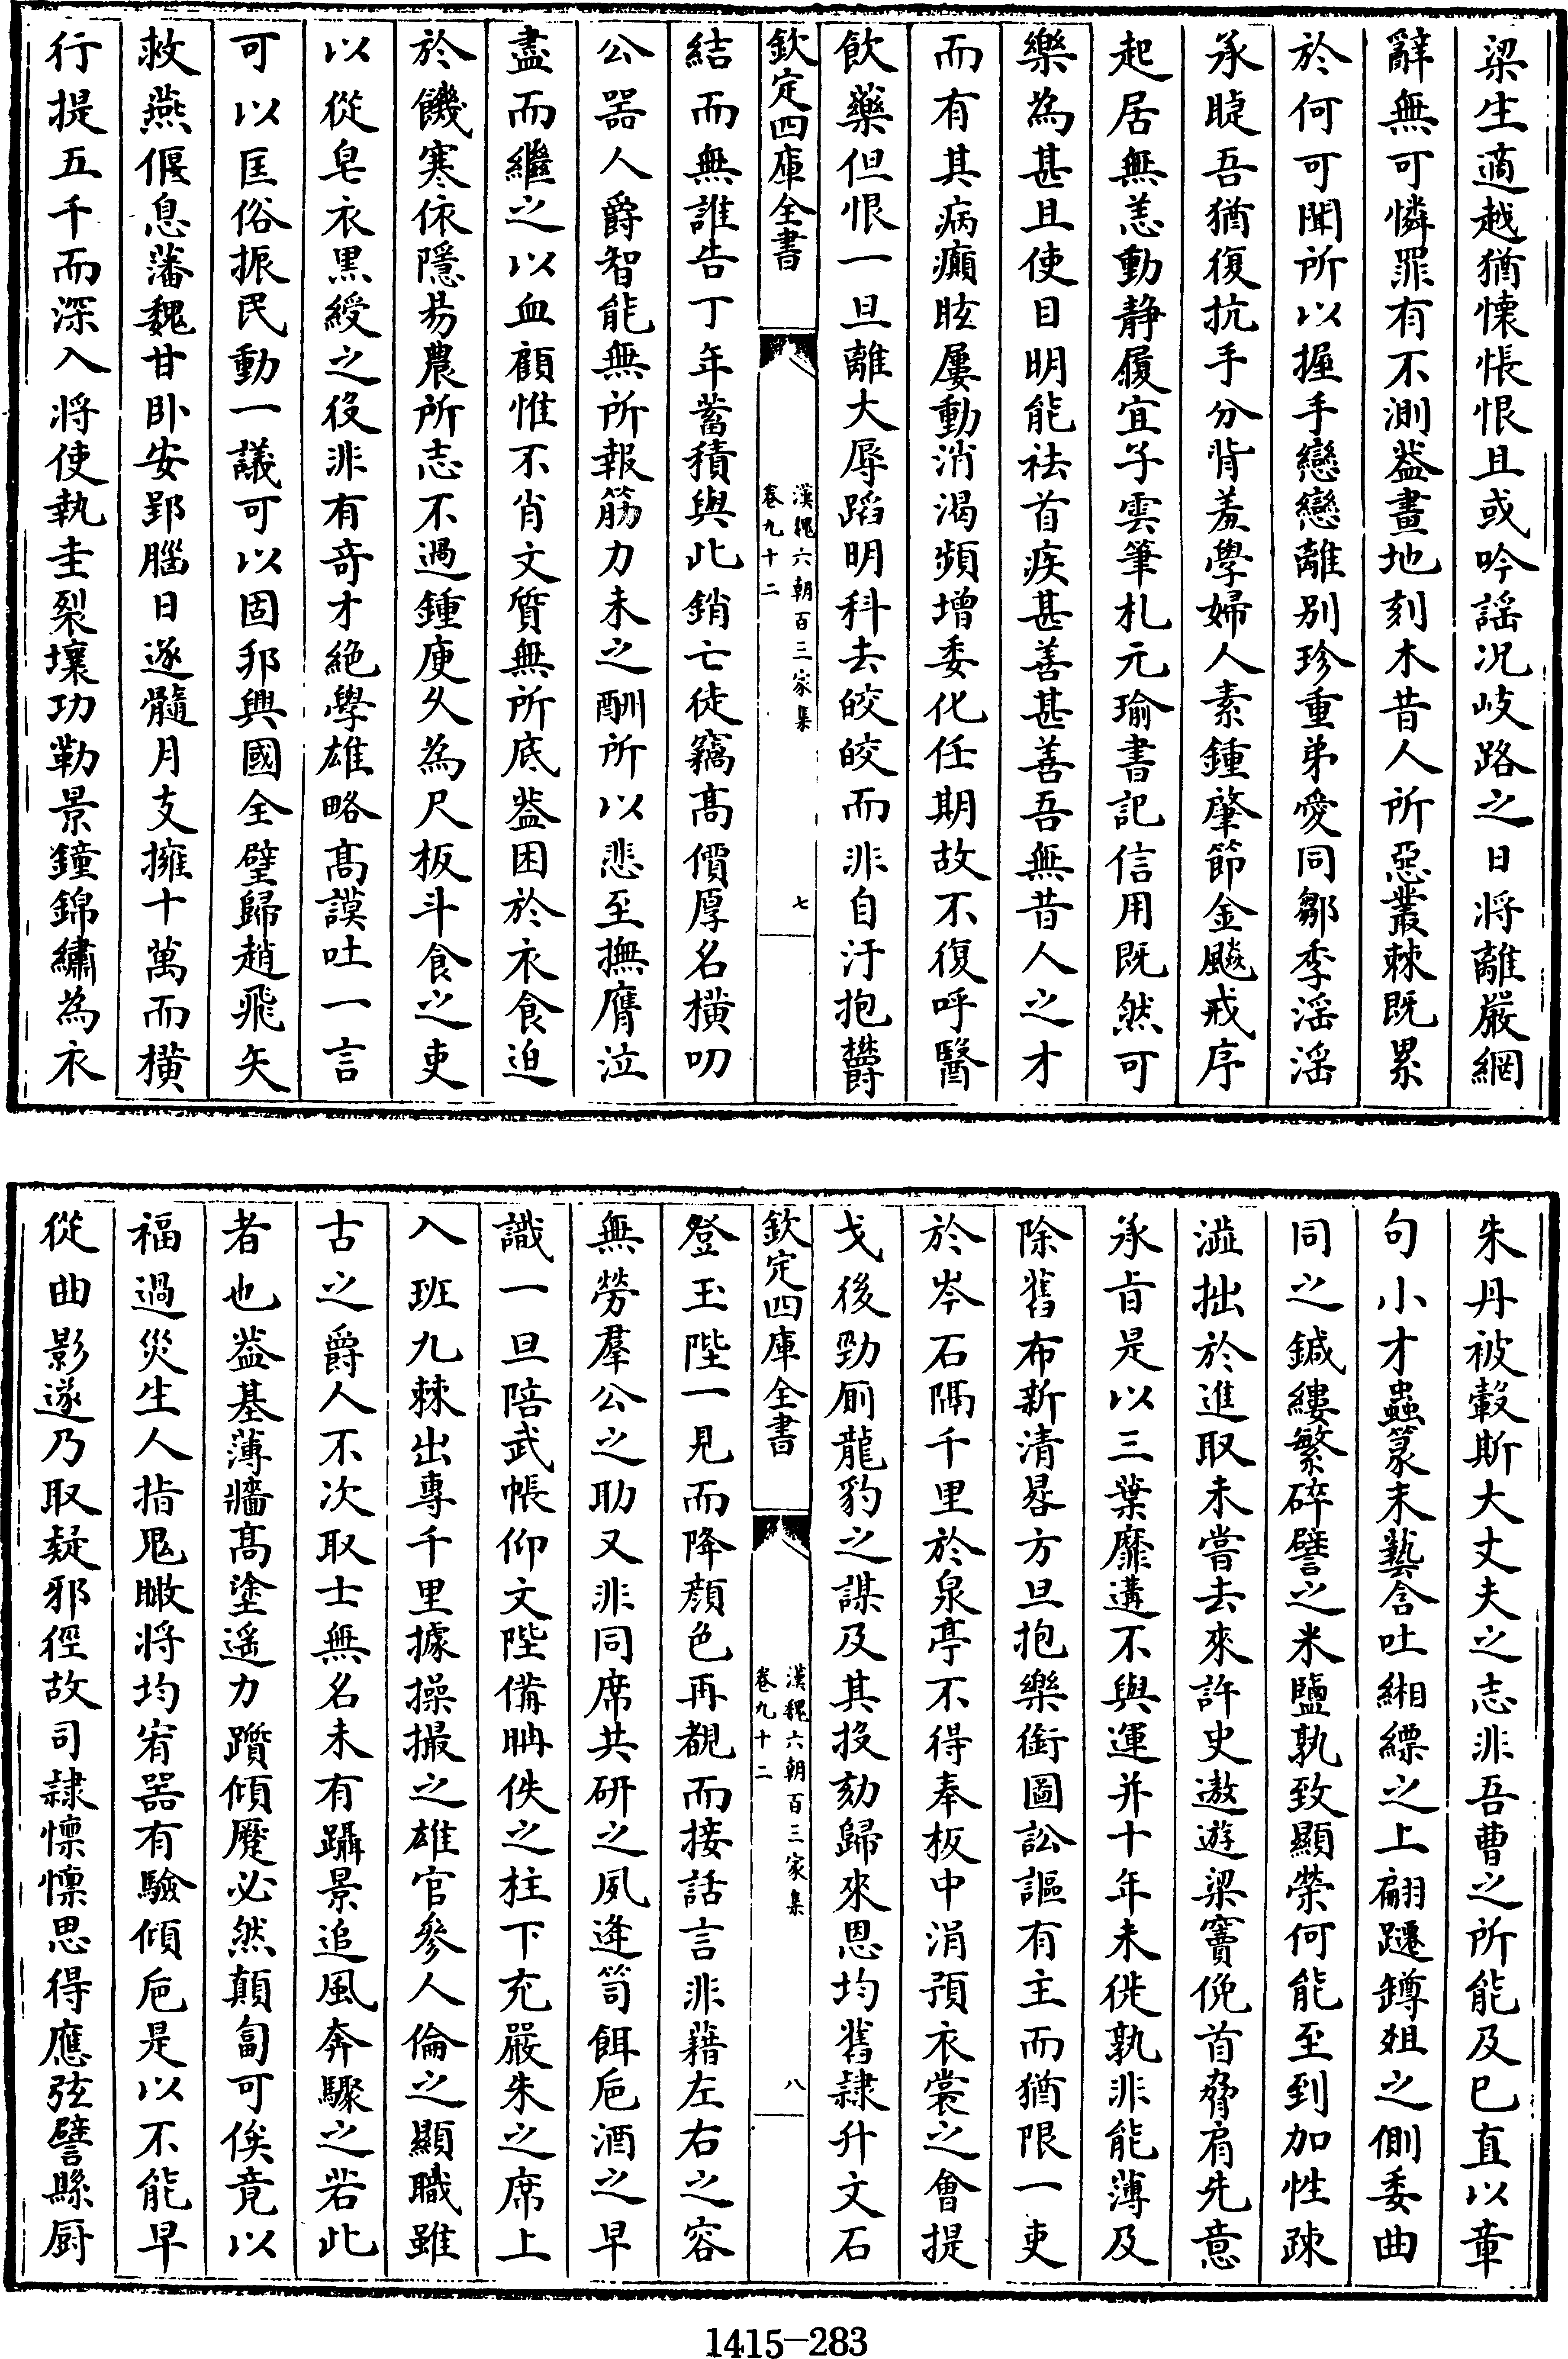 梁生適越猶懐悵恨且或吟謡况岐路之日将離嚴網
辭無可憐罪有不測葢畫地刻木昔人所惡叢棘既累
於何可聞所以握手戀戀離别珍重弟愛同鄒季滛滛
承睫吾猶復抗手分背羞學婦人素鍾肇節金飇戒序
起居無恙動静履宜子雲筆札元瑜書記信用既然可
樂為甚且使目明能祛首疾甚善甚善吾無昔人之才
而有其病癲眩屢動消渴頻增委化任期故不復呼醫
飲藥但恨一旦離大辱蹈明科去皎皎而非自汙抱欝
欽定四庫全書
漢魏六朝百三家集
卷九十二
七
結而無誰告丁年蓄積與此銷亡徒竊髙價厚名横叨
公器人爵智能無所報筋力未之酬所以悲至撫膺泣
盡而繼之以血顧惟不肖文質無所底葢困於衣食迫
於饑寒依隱易農所志不過鍾庾久為尺板斗食之吏
以從皂衣黒綬之役非有奇才絶學雄略髙謨吐一言
可以匡俗振民動一議可以固邦興國全璧歸趙飛矢
救燕偃息藩魏甘卧安郢腦日逐髓月支擁十萬而横
行提五千而深入將使執圭裂壤功勒景鐘錦繡為衣
朱丹被轂斯大丈夫之志非吾曹之所能及已直以章
句小才蟲篆末藝含吐緗縹之上翩躚罇俎之側委曲
同之鍼縷繁碎譬之米鹽孰致顯榮何能至到加性疎
澁拙於進取未嘗去來許史遨遊梁竇俛首脅肩先意
承旨是以三葉靡遘不與運并十年未徙孰非能薄及
除舊布新清晷方旦抱樂銜圖訟謳有主而猶限一吏
於岑石隔千里於泉亭不得奉板中涓預衣裳之會提
戈後勁厠龍豹之謀及其投劾歸來恩均舊隷升文石
欽定四庫全書
漢魏六朝百三家集
卷九十二
八
登玉陛一見而降顔色再覩而接話言非藉左右之容
無勞羣公之助又非同席共研之夙逄笥餌巵酒之早
識一旦陪武帳仰文陛備聃佚之柱下充嚴朱之席上
入班九棘出專千里據操撮之雄官參人倫之顯職雖
古之爵人不次取士無名未有躡景追風奔驟之若此
者也葢基薄牆髙塗遥力躓傾蹷必然顛匐可俟竟以
福過災生人指鬼瞰將均宥器有驗傾巵是以不能早
從曲影遂乃取疑邪徑故司隷懍懍思得應弦譬縣厨
1415-283